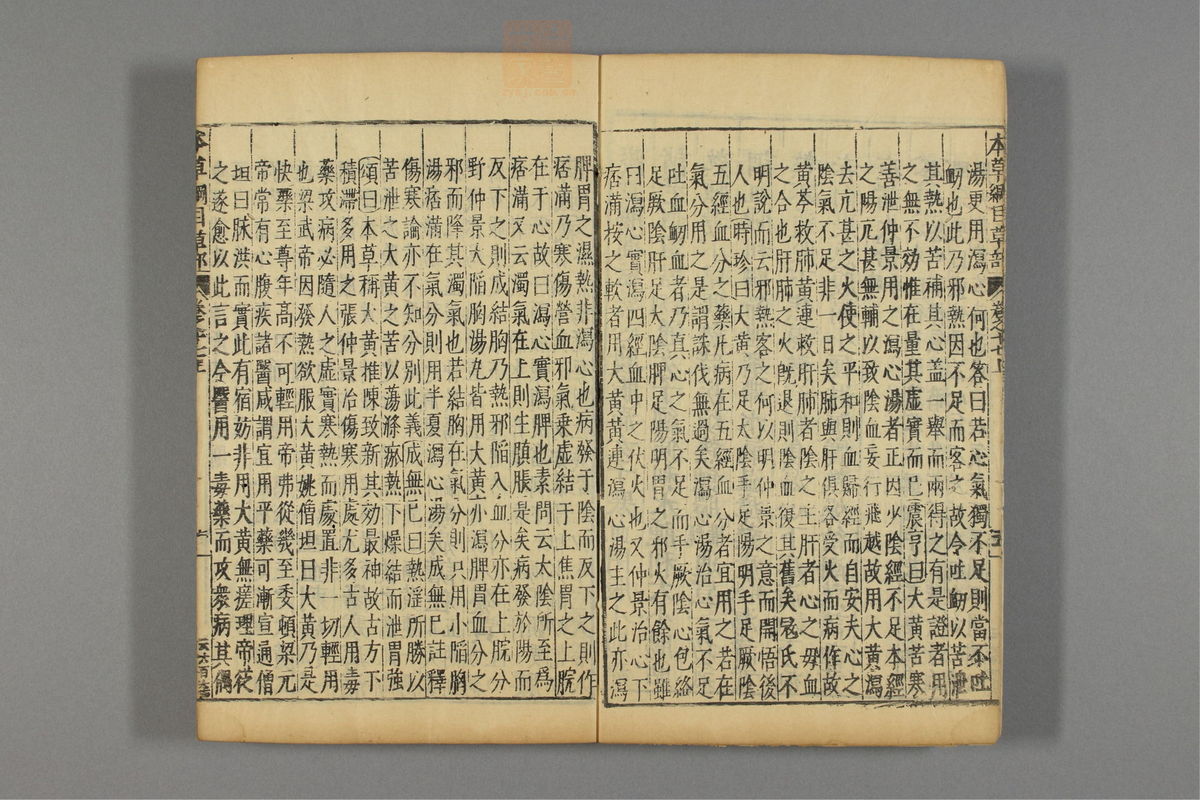 本草綱目草部
湯更用瀉心何也答曰若心氣獨不足則當不吐
衂也此乃邪熱因不足而客之故令吐衂以苦泄
其熱以苦補其心盖一舉而兩得之有是證者用
之無不効惟在量其虛實而已震亨曰大黄苦寒
善泄仲景用之瀉心湯者正因少陰經不足本經
之陽亢甚無輔以致陰血妄行飛越故用大黄瀉
去亢甚之火使之平和則血歸經而自安夫心之
陰氣不足非一日矣肺與肝俱各受火而病作故
黄芩救肺黄連救肝肺者陰之主肝者心之母血
之合也肝肺之火旣退則陰血復其舊矣寇氏不
明說而云邪熱客之何以明仲景之意而開悟後
人也時珍曰大黄乃足太陰手足陽明手足厥陰
五經血分之藥凡病在五經血分者宜用之若在
氣分用之是謂誅伐無過矣瀉心湯治心氣不足
吐血衂血者乃真心之氣不足而手厥陰心包絡
足厥陰肝足太陰脾足陽明胃之邪火有餘也雖
曰瀉心實瀉四經血中之伏火也又仲景治心下
痞滿按之軟者用大黄黄連瀉心湯主之此亦瀉
脾胃之濕熱非瀉心也病發于陰而反下之則作
痞滿乃寒傷營血邪氣乗虚結于上焦胃之上脘
在于心故曰瀉心實瀉脾也素問云太陰所至爲
痞滿又云濁氣在上則生䐜脹是矣病發於陽而
反下之則成結胸乃熱邪陷入血分亦在上脘分
野仲景大陷胸湯丸皆用大黄亦瀉脾胃血分之
邪而降其濁氣也若結胸在氣分則只用小陷胸
湯痞滿在氣分則用半夏瀉心湯矣成無已註釋
傷寒論亦不知分别此義成無已曰熱淫所勝以
苦泄之大黄之苦以蕩滌瘀熱下燥結而泄胃強
頌曰本草稱大黄推陳致新其効最神故古方下
積滯多用之張仲景治傷寒用處尤多古人用毒
藥攻病必隨人之虛實寒熱而處置非一切輕用
也梁武帝因發熱欲服大黄姚僧坦曰大黄乃是
快藥至尊年高不可輕用帝弗從幾至委頓梁元
帝常有心腹疾諸醫咸謂宜用平藥可漸宣通僧
垣曰脉洪而實此有宿妨非用大黄無瘥理帝從
之遂愈以此言之今醫用一毒藥而攻衆病其偶
本草綱目草部